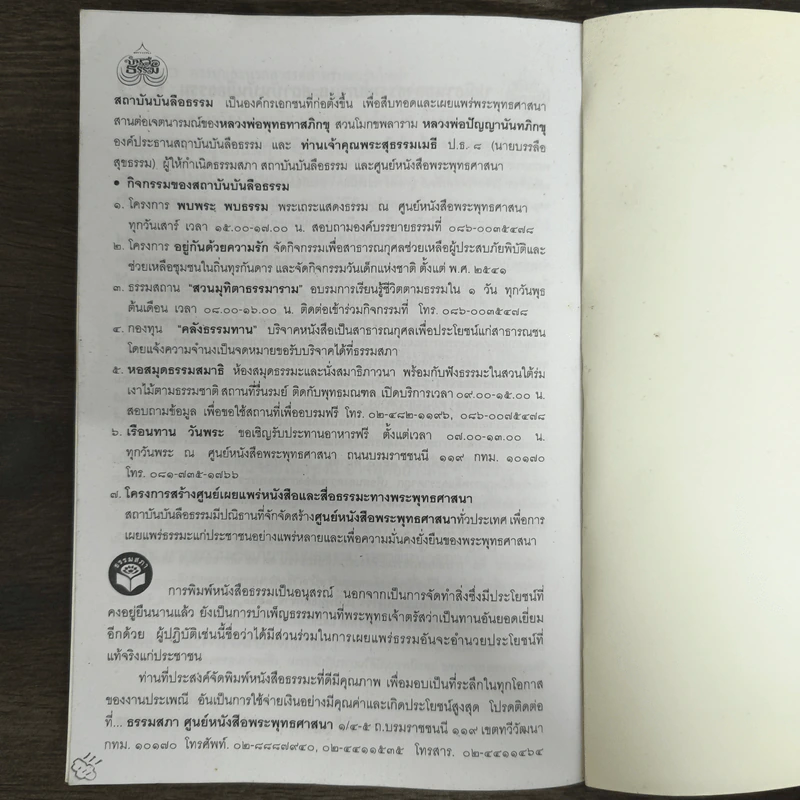 บันลือ
ธรรม
สถาบันบันลือธรรม เป็นองค์กรเอกชนที่ก่อตั้งขึ้น เพื่อสืบทอดและเผยแพร่พระพุทธศาสนา
สานต่อเจตนารมณ์ของหลวงพ่อพุทธทาสภิกขุ สวนโมกขพลาราม หลวงพ่อปัญญานันทภิกขุ
องค์ประธานสถาบันบันลือธรรม และ ท่านเจ้าคุณพระสุธรรมเมธี ป.ธ. ๘ (นายบรรลือ
สุขธรรม) ผู้ให้กำเนิดธรรมสภา สถาบันบันลือธรรม และศูนย์หนังสือพระพุทธศาสนา
• กิจกรรมของสถาบันบันลือธรรม
๑. โครงการ พบพระ พบธรรม พระเถระแสดงธรรม ณ ศูนย์หนังสือพระพุทธศาสนา
ทุกวันเสาร์ เวลา ๑๕.๐๐-๑๗.๐๐ น. สอบถามองค์บรรยายธรรมที่ ๐๘๖-๐๐๓๕๔๗๘
๒. โครงการ อยู่กันด้วยความรัก จัดกิจกรรมเพื่อสาธารณกุศลช่วยเหลือผู้ประสบภัยพิบัติและ
ช่วยเหลือชุมชนในถิ่นทุรกันดาร และจัดกิจกรรมวันเด็กแห่งชาติ ตั้งแต่ พ.ศ. ๒๕๔๑
๓. ธรรมสถาน "สวนมุทิตาธรรมาราม" อบรมการเรียนรู้ชีวิตตามธรรมใน ๑ วัน ทุกวันพุธ
ต้นเดือน เวลา ๐๘.๐๐-๑๖.๐๐ น. ติดต่อเข้าร่วมกิจกรรมที่ โทร. ๐๘๖-๐๐๓๕๔๗๘
๔. กองทุน "คลังธรรมทาน" บริจาคหนังสือเป็นสาธารณกุศลเพื่อประโยชน์แก่สาธารณชน
โดยแจ้งความจำนงเป็นจดหมายขอรับบริจาคได้ที่ธรรมสภา
๕. หอสมุดธรรมสมาธิ ห้องสมุดธรรมะและนั่งสมาธิภาวนา พร้อมกับฟังธรรมะในสวนใต้ร่ม
เงาไม้ตามธรรมชาติ สถานที่รื่นรมย์ ติดกับพุทธมณฑล เปิดบริการเวลา ๐๙.๐๐-๑๕.๐๐ น.
สอบถามข้อมูล เพื่อขอใช้สถานที่เพื่ออบรมฟรี โทร. ๐๒-๔๘๒-๑๑๙๖, ๐๘๖-๐๐๗๕๔๗๘
๖. เรือนทาน วันพระ ขอเชิญรับประทานอาหารฟรี ตั้งแต่เวลา ๐๗.๐๐-๑๓.๐๐ น.
ทุกวันพระ ณ ศูนย์หนังสือพระพุทธศาสนา ถนนบรมราชชนนี ๑๑๙ กทม. ๑๐๑๗๐
โทร. ๐๘๑-๗๓๕-๑๗๖๖
๗. โครงการสร้างศูนย์เผยแพร่หนังสือและสื่อธรรมะทางพระพุทธศาสนา
สถาบันบันลือธรรมมีปณิธานที่จักจัดสร้างศูนย์หนังสือพระพุทธศาสนาทั่วประเทศ เพื่อการ
เผยแพร่ธรรมะแก่ประชาชนอย่างแพร่หลายและเพื่อความมั่นคงยั่งยืนของพระพุทธศาสนา
ธรรมสภา
การพิมพ์หนังสือธรรมเป็นอนุสรณ์ นอกจากเป็นการจัดทำสิ่งซึ่งมีประโยชน์ที่
คงอยู่ยืนนานแล้ว ยังเป็นการบำเพ็ญธรรมทานที่พระพุทธเจ้าตรัสว่าเป็นทานอันยอดเยี่ยม
อีกด้วย ผู้ปฏิบัติเช่นนี้ชื่อว่าได้มีส่วนร่วมในการเผยแพร่ธรรมอันจะอำนวยประโยชน์ที่
แท้จริงแก่ประชาชน
ท่านที่ประสงค์จัดพิมพ์หนังสือธรรมะที่ดีมีคุณภาพ เพื่อมอบเป็นที่ระลึกในทุกโอกาส
ของงานประเพณี อันเป็นการใช้จ่ายเงินอย่างมีคุณค่าและเกิดประโยชน์สูงสุด โปรดติดต่อ
ที่... ธรรมสภา ศูนย์หนังสือพระพุทธศาสนา ๑/๔-๕ ถ.บรมราชชนนี ๑๑๙ เขตทวีวัฒนา
กทม. ๑๐๑๗๐ โทรศัพท์. ๐๒-๘๘๘๗๙๔๐, ๐๒-๔๔๑๑๕๓๕ โทรสาร. ๐๒-๔๔๑๑๔๖๔